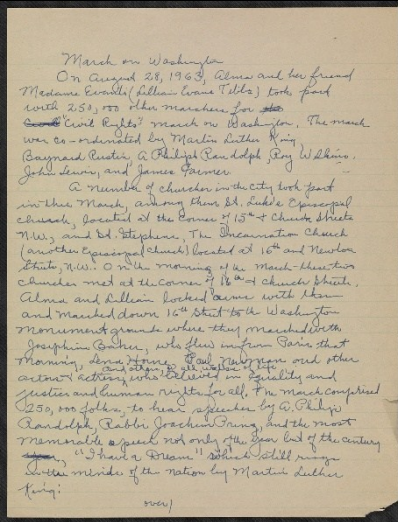 March on Washington
On August 28, 1963, Alma and her friend
Madame Evanti (Lillian Evans Tibbs) took part
with 250,000 other marchers for
"Civil Rights" march on Washington. The march
was co-ordinated by Martin Luther King,
Baynard Rustin, A. Philip Randolph, Roy Wilkins,
John Lewis, and James Farmer
A number of churches in the city took part
in this march, among them St. Luke's Episcopal
church, located at the corner of 15th & Church Streets
N.W., and St. Stephens, The Incarnation Church
(another Episcopal church) located at 16th and Newton
Streets, N.W. On the morning of the March these two
churches met at the corner of 16th & Church Streets.
Alma and Lillian locked arms with them
and marched down 16th Street to the Washington
Monument grounds where they marched with
Josephine Baker, who flew in from Paris that
morning, Lena Horne, Paul Newman and other
and others, of all walks of life
actors & actress, who believed in equality and
justice and human rights for all. The march comprised
250,000 folks, to hear speeches by A. Philip
Randolph, Rabbi Joachim Prinz, and the most
memorable speech not only of the year but of the century
"I have a Dream" which still rings
in the minds of the nation by Martin Luther
King.
over)